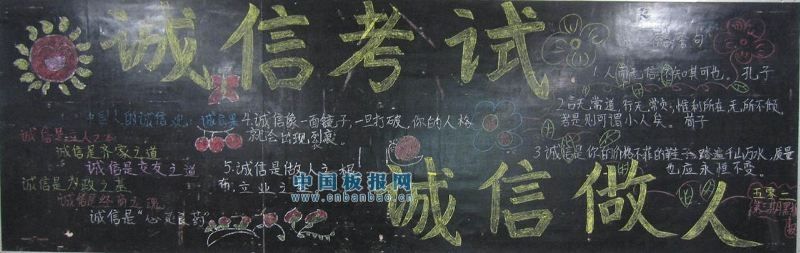 诚信考试
诚信做人
名言警句
1.人而无信,不知其可也。孔子
2.言无常道,行无常贞,惟利所在,无所不倾,
若是则可谓小人矣。荀子
3.诚信是你价格不菲的鞋子,踏遍千山万水,质量
也应永恒不变。
4.诚信像一面镜子,一旦打破,你的人格
就会出现裂裹。
5.诚信是做人之根
立业之
中国人的诚信观:诚信是
诚信是立人之
诚信是齐家之道
诚信是交友之道
诚信是为政之基
诚信是经商之魂
诚信是“心灵良药”
中国板报网
www.cnbanbao.cn
五零一
第三期黑板
报